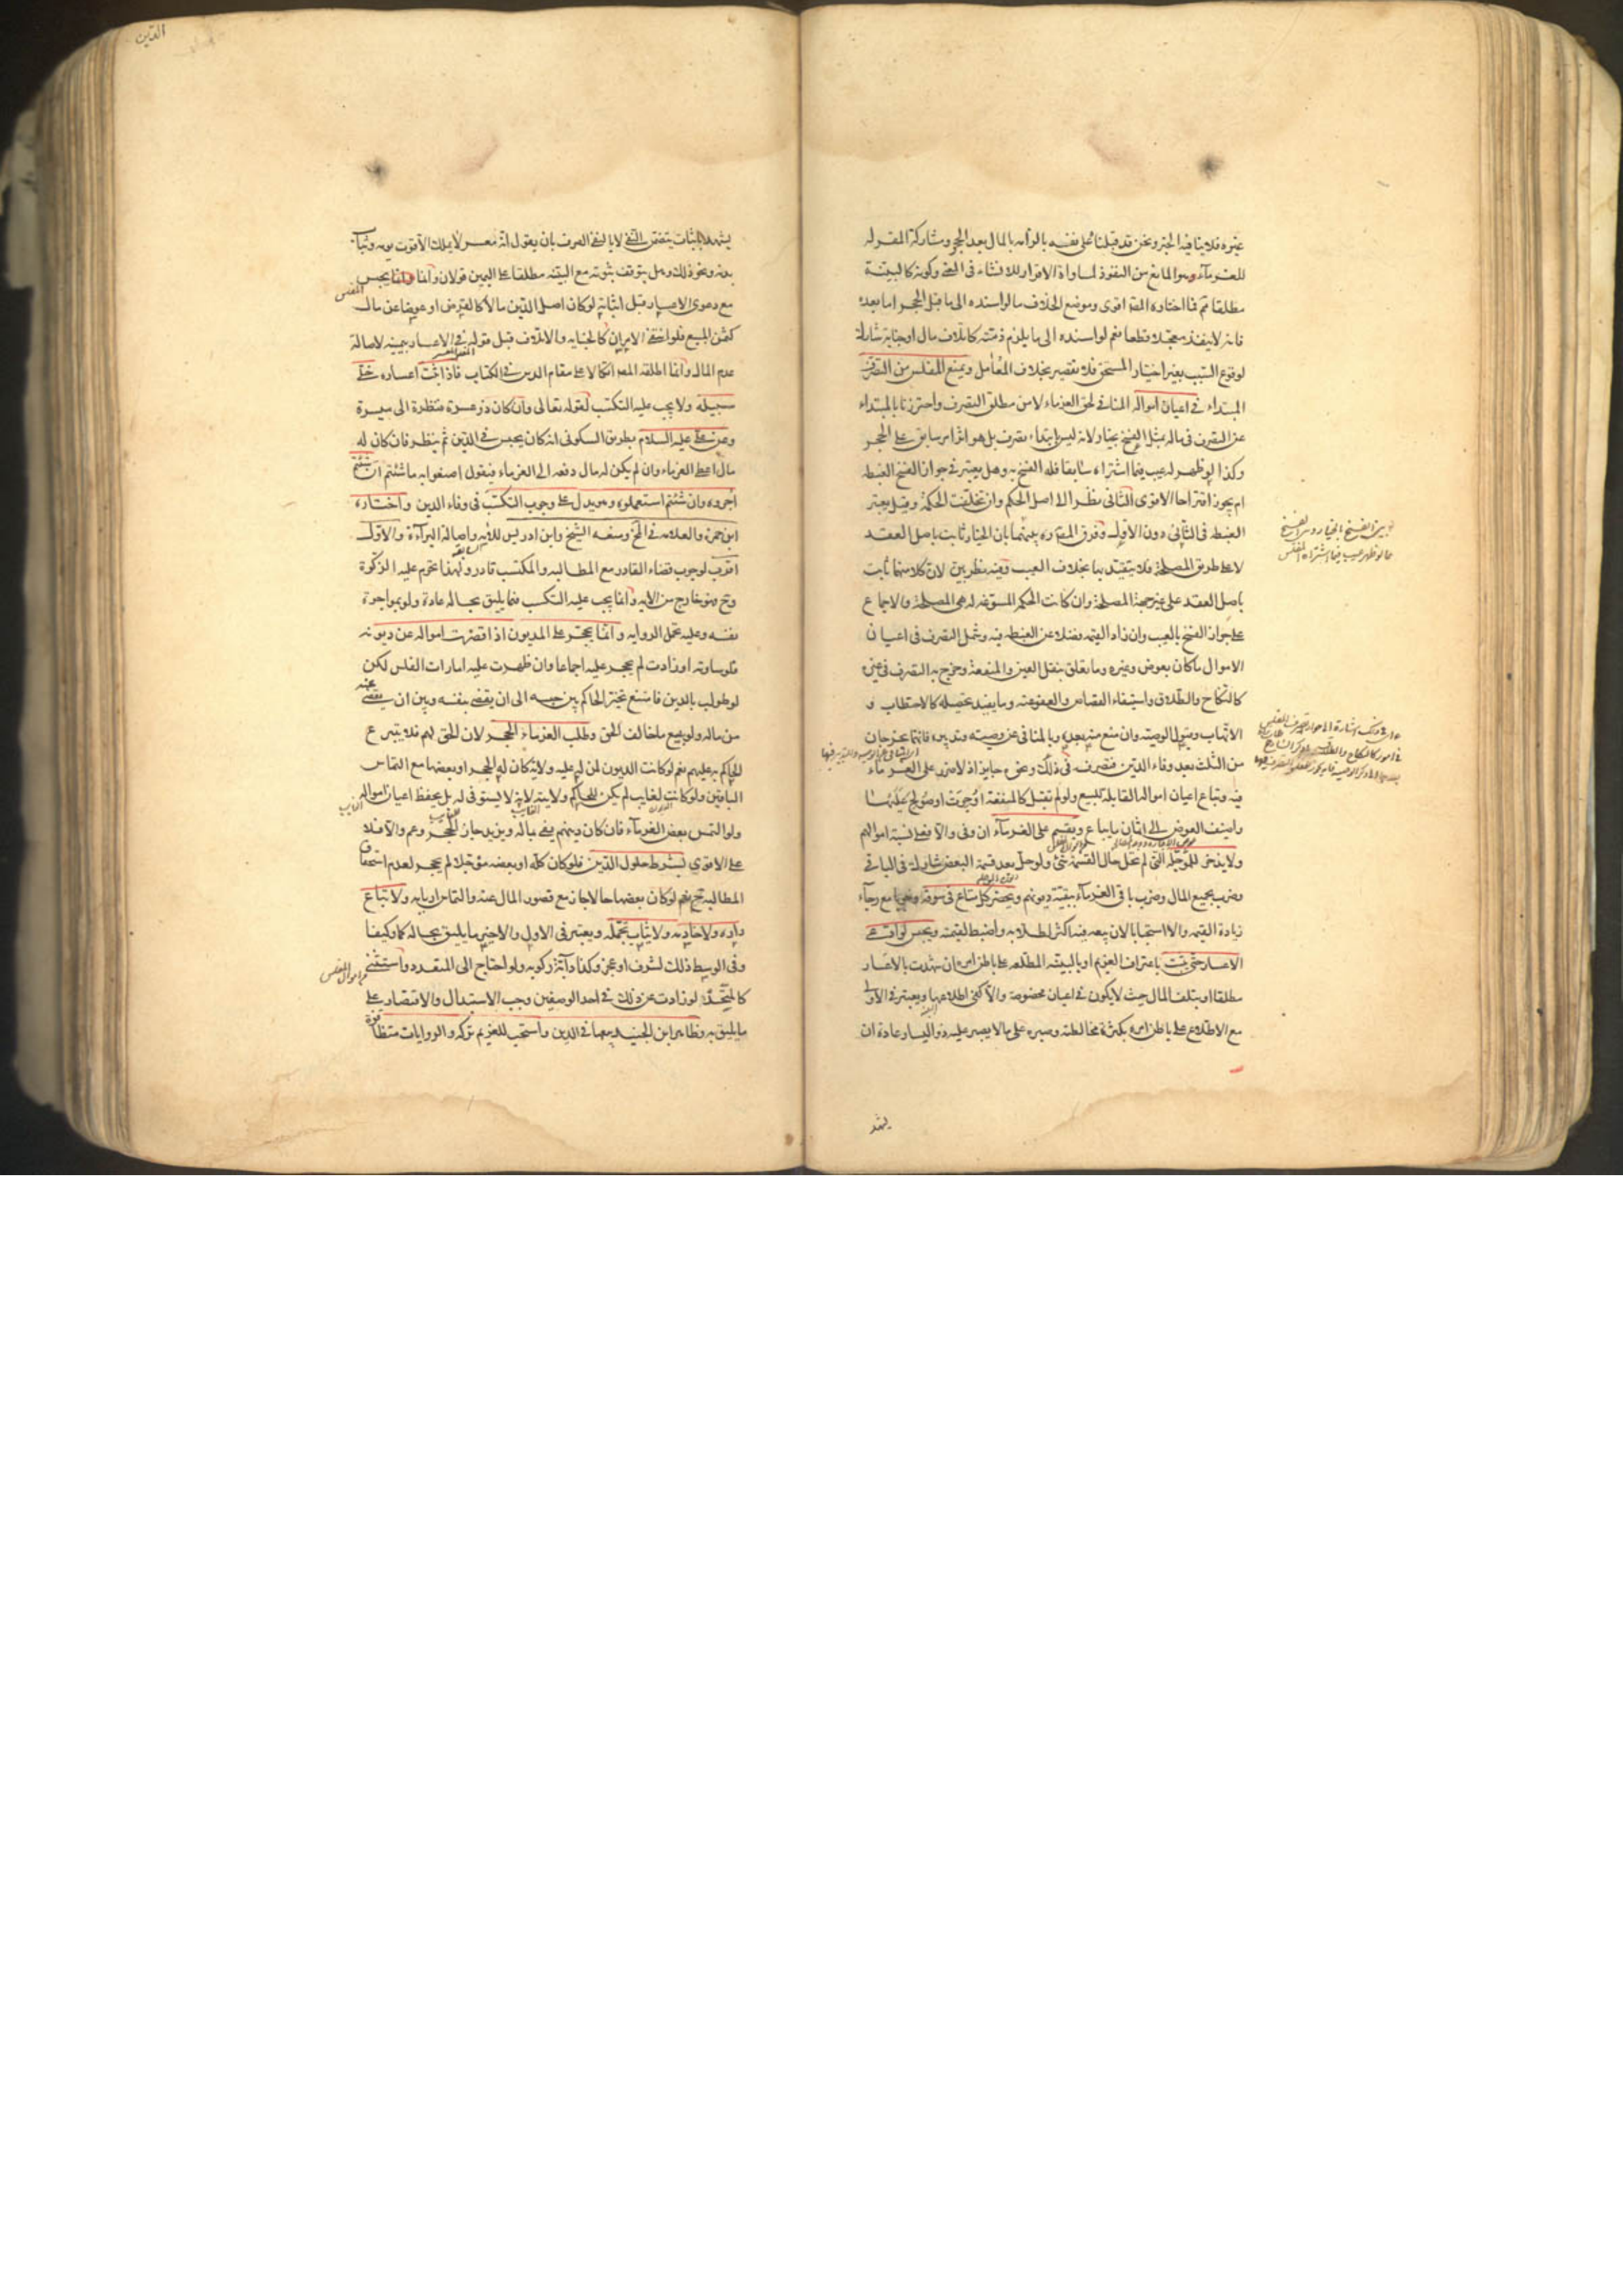 غيره فلا ينافيه الحجر ونحن قد قبلناه على نفسه بالزامه بالمال بعد الحجر ومشاركة المقر له
للغرماء وهو المانع من النفوذ لمساواة الاقرار للانشاء في المعنى وكونه كالبينة
مطلقا ثم فما اختاره المصـ اقوى وموضع الخلاف ما لو اسنده الى ما قبل الحجر اما بعده
فانه لا ينفذ معجلا قطعا نعم لو اسنده الى ما يلزم ذمته كاتلاف مال او جناية شارك
لوقوع السبب بغير اختيار المستحق فلا تقصير بخلاف المعامل ويمنع المفلس من التصرف
المبتداء في اعيان امواله المنافي لحق الغرماء لا من مطلق التصرف واحترزنا بالمبتداء
عن التصرف في ماله بمثل الفسخ بخيار لانه ليس بابتداء تصرف بل هو اثر امر سابق على الحجر
وكذا لو ظهر له عيب فيما اشتراه سابقا فله الفسخ به وهل يعتبر في جواز الفسخ الغبطة
ام يجوز اقتراحا الاقوى الثاني نظرا الى اصل الحكم وان تخلفت الحكمة وقيل يعتبر
الغبطة في الثاني دون الاول وفرق المصـ ره بينهما بان الخيار ثابت باصل العقد
لا على طريق المصلحة فلا يتقيد بها بخلاف العيب وفيه نظر بين لان كلا منهما ثابت
باصل العقد على غير جهة المصلحة وان كانت الحكم المسوغة له هي المصلحة والاجماع
على جواز الفسخ بالعيب وان زاد القيمة فضلا عن الغبطة فيه وشمل التصرف في اعيان
الاموال ما كان بعوض وغيره وما تعلق بنقل العين والمنفعة وخرج به التصرف في غيره
كالنكاح والطلاق واستيفاء القصاص والعفو عنه وما يفيد تحصيله كالاحتطاب و
الاتهاب وقبول الوصية وان منع منه بعده وبالمنافي عن وصيته وتدبيره فانهما يخرجان
من الثلث بعد وفاء الدين فتصرفه في ذلك ونحوه جايز اذ لا ضرر على الغرماء
فيه وتباع اعيان امواله القابلة للبيع ولو لم تقبل كالمنفعة اوجرت او صولح عليها
واضيف العوض الى اثمان ما يباع ويقسم على الغرماء ان وفى والا فعلى نسبة اموالهم
ولا يدخر للمؤجلة التي لم تحل حال القسمة شئ ولو حل بعد قسمة البعض شارك في الباقي
وضرب بجميع المال وضرب باقي الغرماء ببقية ديونهم ويحضر كل متاع في سوقه وجوبا مع رجاء
زيادة القيمة والا استحبابا لان بيعه فيه اكثر لطلابه واضبط لقيمته ويحبس لو ادعى
الاعسار حتى يثبت باعتراف الغريم او بالبينة المطلعة على باطن امره ان شهدت بالاعسار
مطلقا او بتلف المال حيث لا يكون في اعيان مخصوصة والا كفى اطلاعها ويعتبر في الاولى
مع الاطلاع على باطن امره بكثرة مخالطته وصبره على ما لا يصبر عليه ذو اليسار عادة ان
يشهد
الدين
يشهد باثبات يتضمن النفي لا بالنفي الصرف بان يقول انه معسر لا يملك الا قوت يومه وثياب
بدنه ونحو ذلك وهل يتوقف ثبوته مع البينة مطلقا على اليمين قولان وانما يحبس
مع دعوى الاعسار قبل اثباته لو كان اصل الدين مالا كالقرض او عوضا عن مال
كثمن المبيع فلو انتفى الامران كالجناية والاتلاف قبل قوله في الاعسار بيمينه لاصالة
عدم المال وانما اطلقه المصـ اتكالا على مقام الدين في الكتاب فاذا اثبت اعساره خلى
سبيله ولا يجب عليه التكسب لقوله تعالى وان كان ذو عسرة فنظرة الى ميسرة
وعن علي عليه السلام بطريق السكوني انه كان يحبس في الدين ثم ينظر فان كان له
مال اعطى الغرماء وان لم يكن له مال دفعه الى الغرماء فيقول اصنعوا به ما شئتم ان شئتم
آجروه وان شئتم استعملوه وهو يدل على وجوب التكسب في وفاء الدين واختاره
ابن حمزة والعلامة في المخ ومنعه الشيخ وابن ادريس للاية واصالة البراءة والاول
اقرب لوجوب قضاء القادر مع المطالبة والمكتسب قادر ولهذا تحرم عليه الزكوة
وح فهو خارج من الاية وانما يجب عليه التكسب فيما يليق بحاله عادة ولو بمواجرة
نفسه وعليه تحمل الرواية وانما يحجر على المديون اذا قصرت امواله عن ديونه
فلو ساوته او زادت لم يحجر عليه اجماعا وان ظهرت عليه امارات الفلس لكن
لو طولب بالدين فامتنع تخير الحاكم بين حبسه الى ان يقضي بنفسه وبين ان يقضي عنه
من ماله ولو ببيع ما خالف الحق وطلب الغرماء الحجر لان الحق لهم فلا يتبرع
الحاكم به عليهم نعم لو كانت الديون لمن له عليه ولاية كان له الحجر او بعضها مع التماس
الباقين ولو كانت لغايب لم يكن للحاكم ولايته لانه لا يستوفي له بل يحفظ اعيان امواله
ولو التمس بعض الغرماء فان كان دينهم يفي بماله ويزيد جاز الحجر وعم والا فلا
على الاقوى بشرط حلول الدين فلو كان كله او بعضه مؤجلا لم يحجر لعدم استحقاق
المطالبة ح نعم لو كان بعضها حالا جاز مع قصور المال عنه والتماس اربابه ولا تباع
داره ولا خادمه ولا ثياب تجمله ويعتبر في الاول والاخير ما يليق بحاله كما وكيفا
وفي الوسط ذلك لشرف او عجز وكذا دابة ركوبه ولو احتاج الى المتعدد استثني
كالمتحد ولو زادت عن ذلك في احد الوصفين وجب الاستبدال والاقتصار على
ما يليق به وظاهر ابن الجنيد بيعها في الدين واستحب للغريم تركه والروايات متظافرة